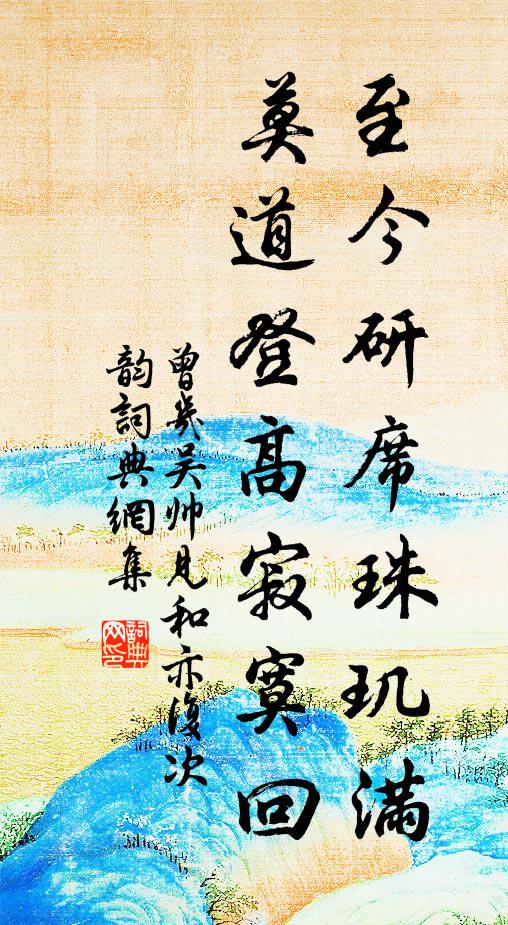 至今研席珠玑满
莫道登高寂寞回
曾几吴帅见和亦复次
韵词典網集
詞典網印